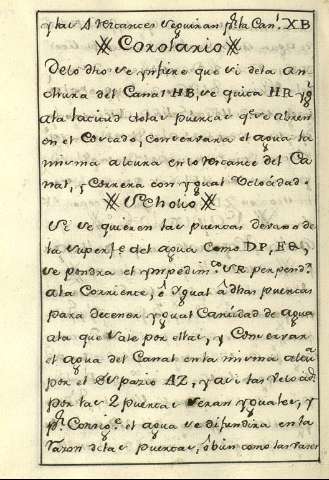 y las Δ Vorcances seguiran pr la Canl XB
Corolario
Delo dho se ynfiere que si dela an
chura del Canal HB, se quita HR ygl
ala lacitud delas puercas qe se abren
en el Coscado, conservara el agua la
misma alcura en lo Vorcance del Ca
nal, y Correra con ygual Velocidad.
Scholio
Si se quieren las puercas devaxo de
la superfe del agua Como DP, EQ,
se pondra el ympedimto SR perpendr
ala Corriente, ó ygual á dhas puercas
para decener ygual Cancidad de agua
ala que sale por ellas, y Conservara
el agua del Canal en la misma alcura
por el Espacio AZ, y asi las Velocids
por las 2 puercas seran yguales, y
pr Consige el agua se difundira en la
Razon delas puercas, ó bien como las vases